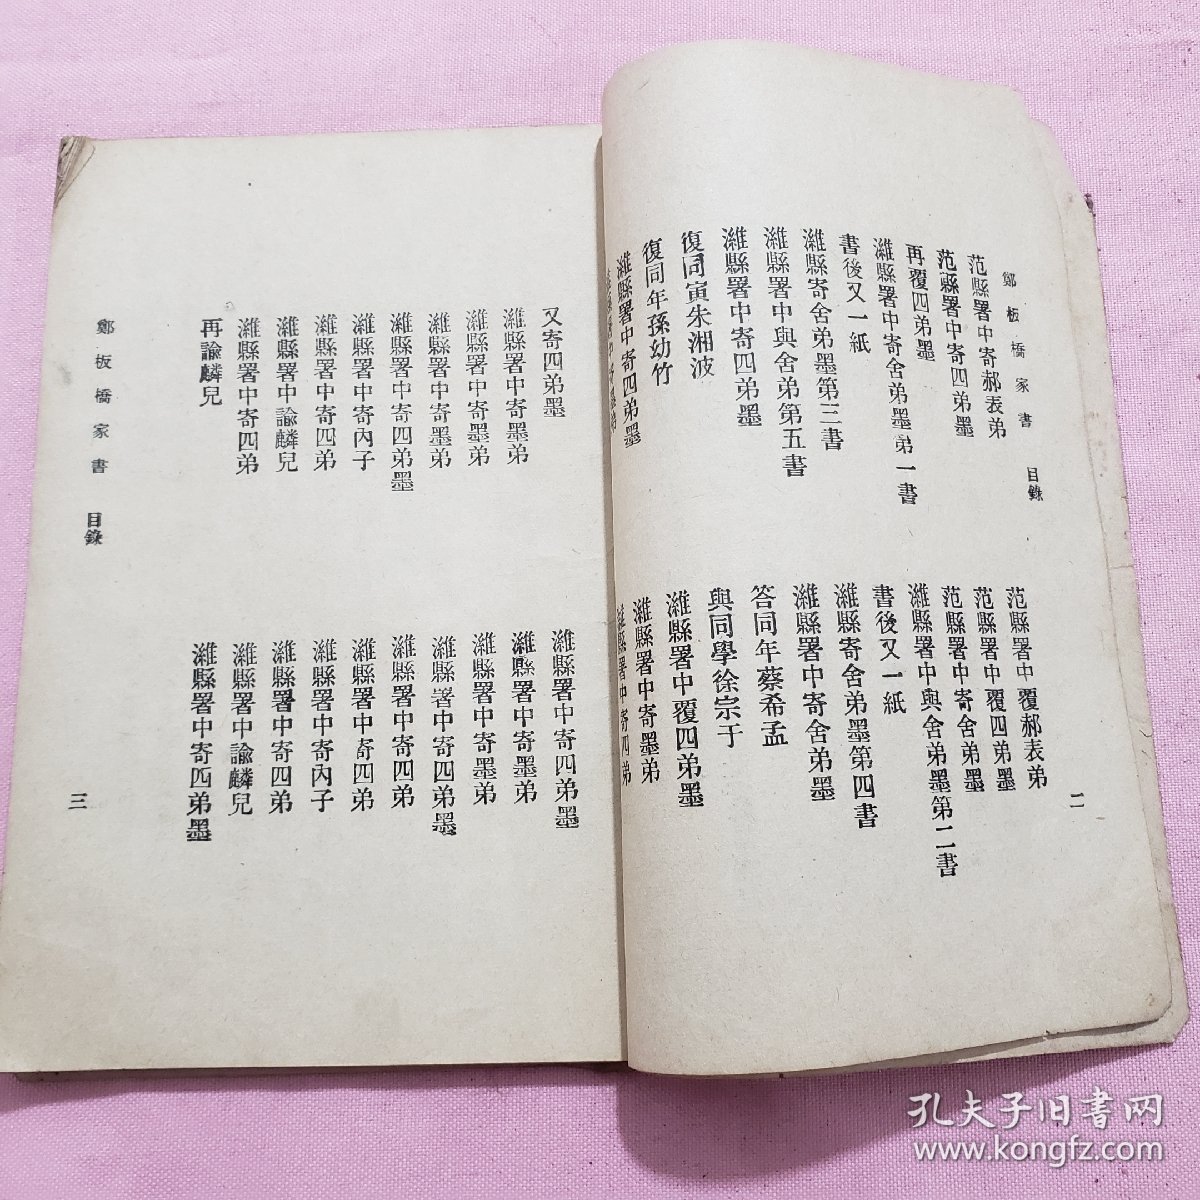 鄭板橋家書 目錄
二
范縣署中寄郝表弟
范縣署中寄四弟墨
再覆四弟墨
濰縣署中寄舍弟墨第一書
書後又一紙
濰縣寄舍弟墨第三書
濰縣署中與舍弟第五書
濰縣署中寄四弟墨
復同寅朱湘波
復同年孫幼竹
濰縣署中寄四弟墨
范縣署中覆郝表弟
范縣署中覆四弟墨
范縣署中寄舍弟墨
濰縣署中與舍弟墨第二書
書後又一紙
濰縣寄舍弟墨第四書
濰縣署中寄舍弟墨
答同年蔡希孟
與同學徐宗于
濰縣署中覆四弟墨
濰縣署中寄墨弟
濰縣署中寄四弟
又寄四弟墨
濰縣署中寄墨弟
濰縣署中寄墨弟
濰縣署中寄墨弟
濰縣署中寄四弟墨
濰縣署中寄內子
濰縣署中寄四弟
濰縣署中諭麟兒
濰縣署中寄四弟
再諭麟兒
濰縣署中寄四弟墨
濰縣署中寄墨弟
濰縣署中寄墨弟
濰縣署中寄四弟墨
濰縣署中寄四弟
濰縣署中寄四弟
濰縣署中寄內子
濰縣署中寄四弟
濰縣署中諭麟兒
濰縣署中寄四弟墨
鄭板橋家書 目錄
三
孔夫子旧书网
www.kongfz.com